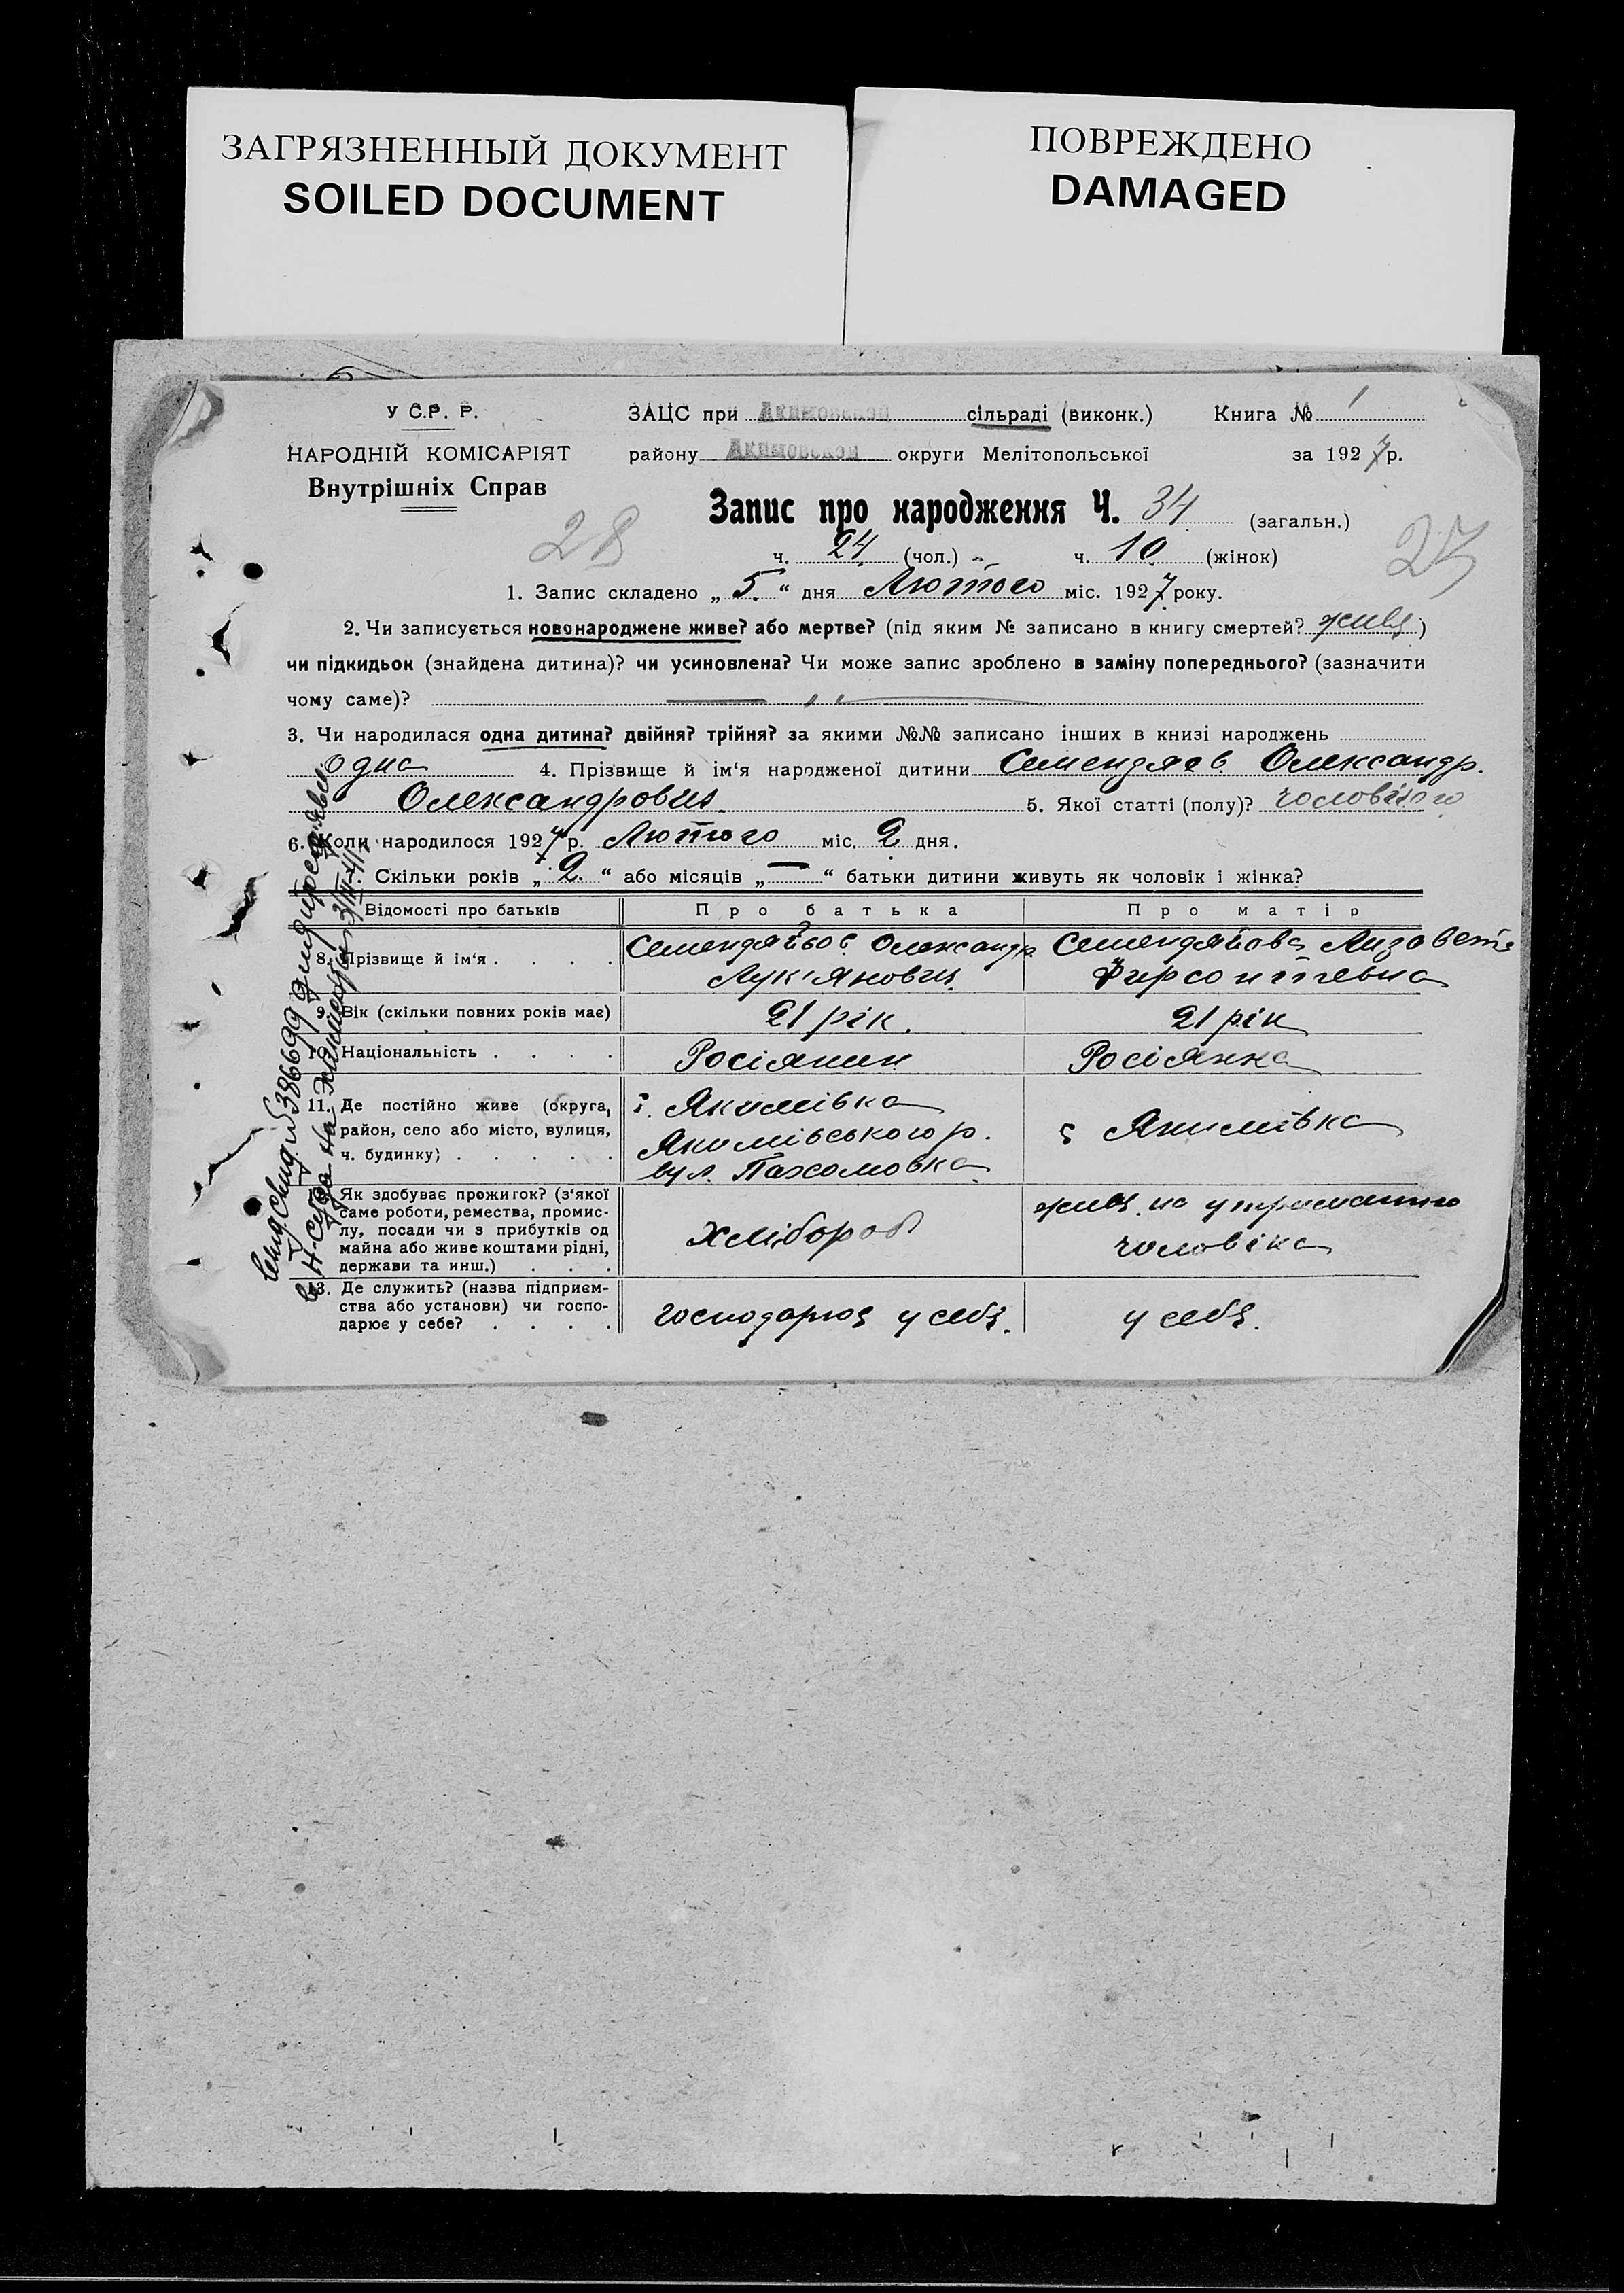 ЗАГРЯЗНЕННЫЙ ДОКУМЕНТ
SOILED DOCUMENT
ПОВРЕЖДЕНО
DAMAGED
У С.Р. Р.
НАРОДНІЙ КОМІСАРІЯТ
Внутрішніх Справ
ЗАЦС при Акимовской сільраді (виконк.) Книга № 1
району Акимовской округи Мелітопольської за 1927 р.
Запис про народження Ч. 34 (загальн.)
28
27
ч. 24 (чол.) ч. 10 (жінок)
1. Запис складено „ 5 “ дня Лютого міс. 1927 року.
2. Чи записується новонароджене живе? або мертве? (під яким № записано в книгу смертей? живе)
чи підкидьок (знайдена дитина)? чи усиновлена? Чи може запис зроблено в заміну попереднього? (зазначити
чому саме)?
3. Чи народилася одна дитина? двійня? трійня? за якими №№ записано інших в книзі народжень
одна 4. Прізвище й ім‘я народженої дитини Семендяєв Олександр
Олександрович 5. Якої статті (полу)? чоловічого
6. Коли народилося 1927 р. Лютого міс. 2 дня.
7. Скільки років „ 2. “ або місяців „ — “ батьки дитини живуть як чоловік і жінка?
Відомості про батьків Про батька Про матір
8. Прізвище й ім‘я . . . . Семендяйов Олександр Семендяйова Лизавета
Лук'янович
9. Вік (скільки повних років має) 21 рік. 21 рік
10. Національність . . . . Росіянин Росіянка
11. Де постійно живе (округа, с. Якимівка
район, село або місто, вулиця, Якимівського р. с Якимівка
ч. будинку) . . . . . вул. Пахомовка
12. Як здобуває прожиток? (з‘якої
саме роботи, ремества, промис-
лу, посади чи з прибутків од
майна або живе коштами рідні,
держави та инш.) . . .
хлібороб
живе на утриманню
чоловіка
13. Де служить? (назва підприєм-
ства або установи) чи госпо-
дарює у себе? . . . .
господарює у себе.
у себе.